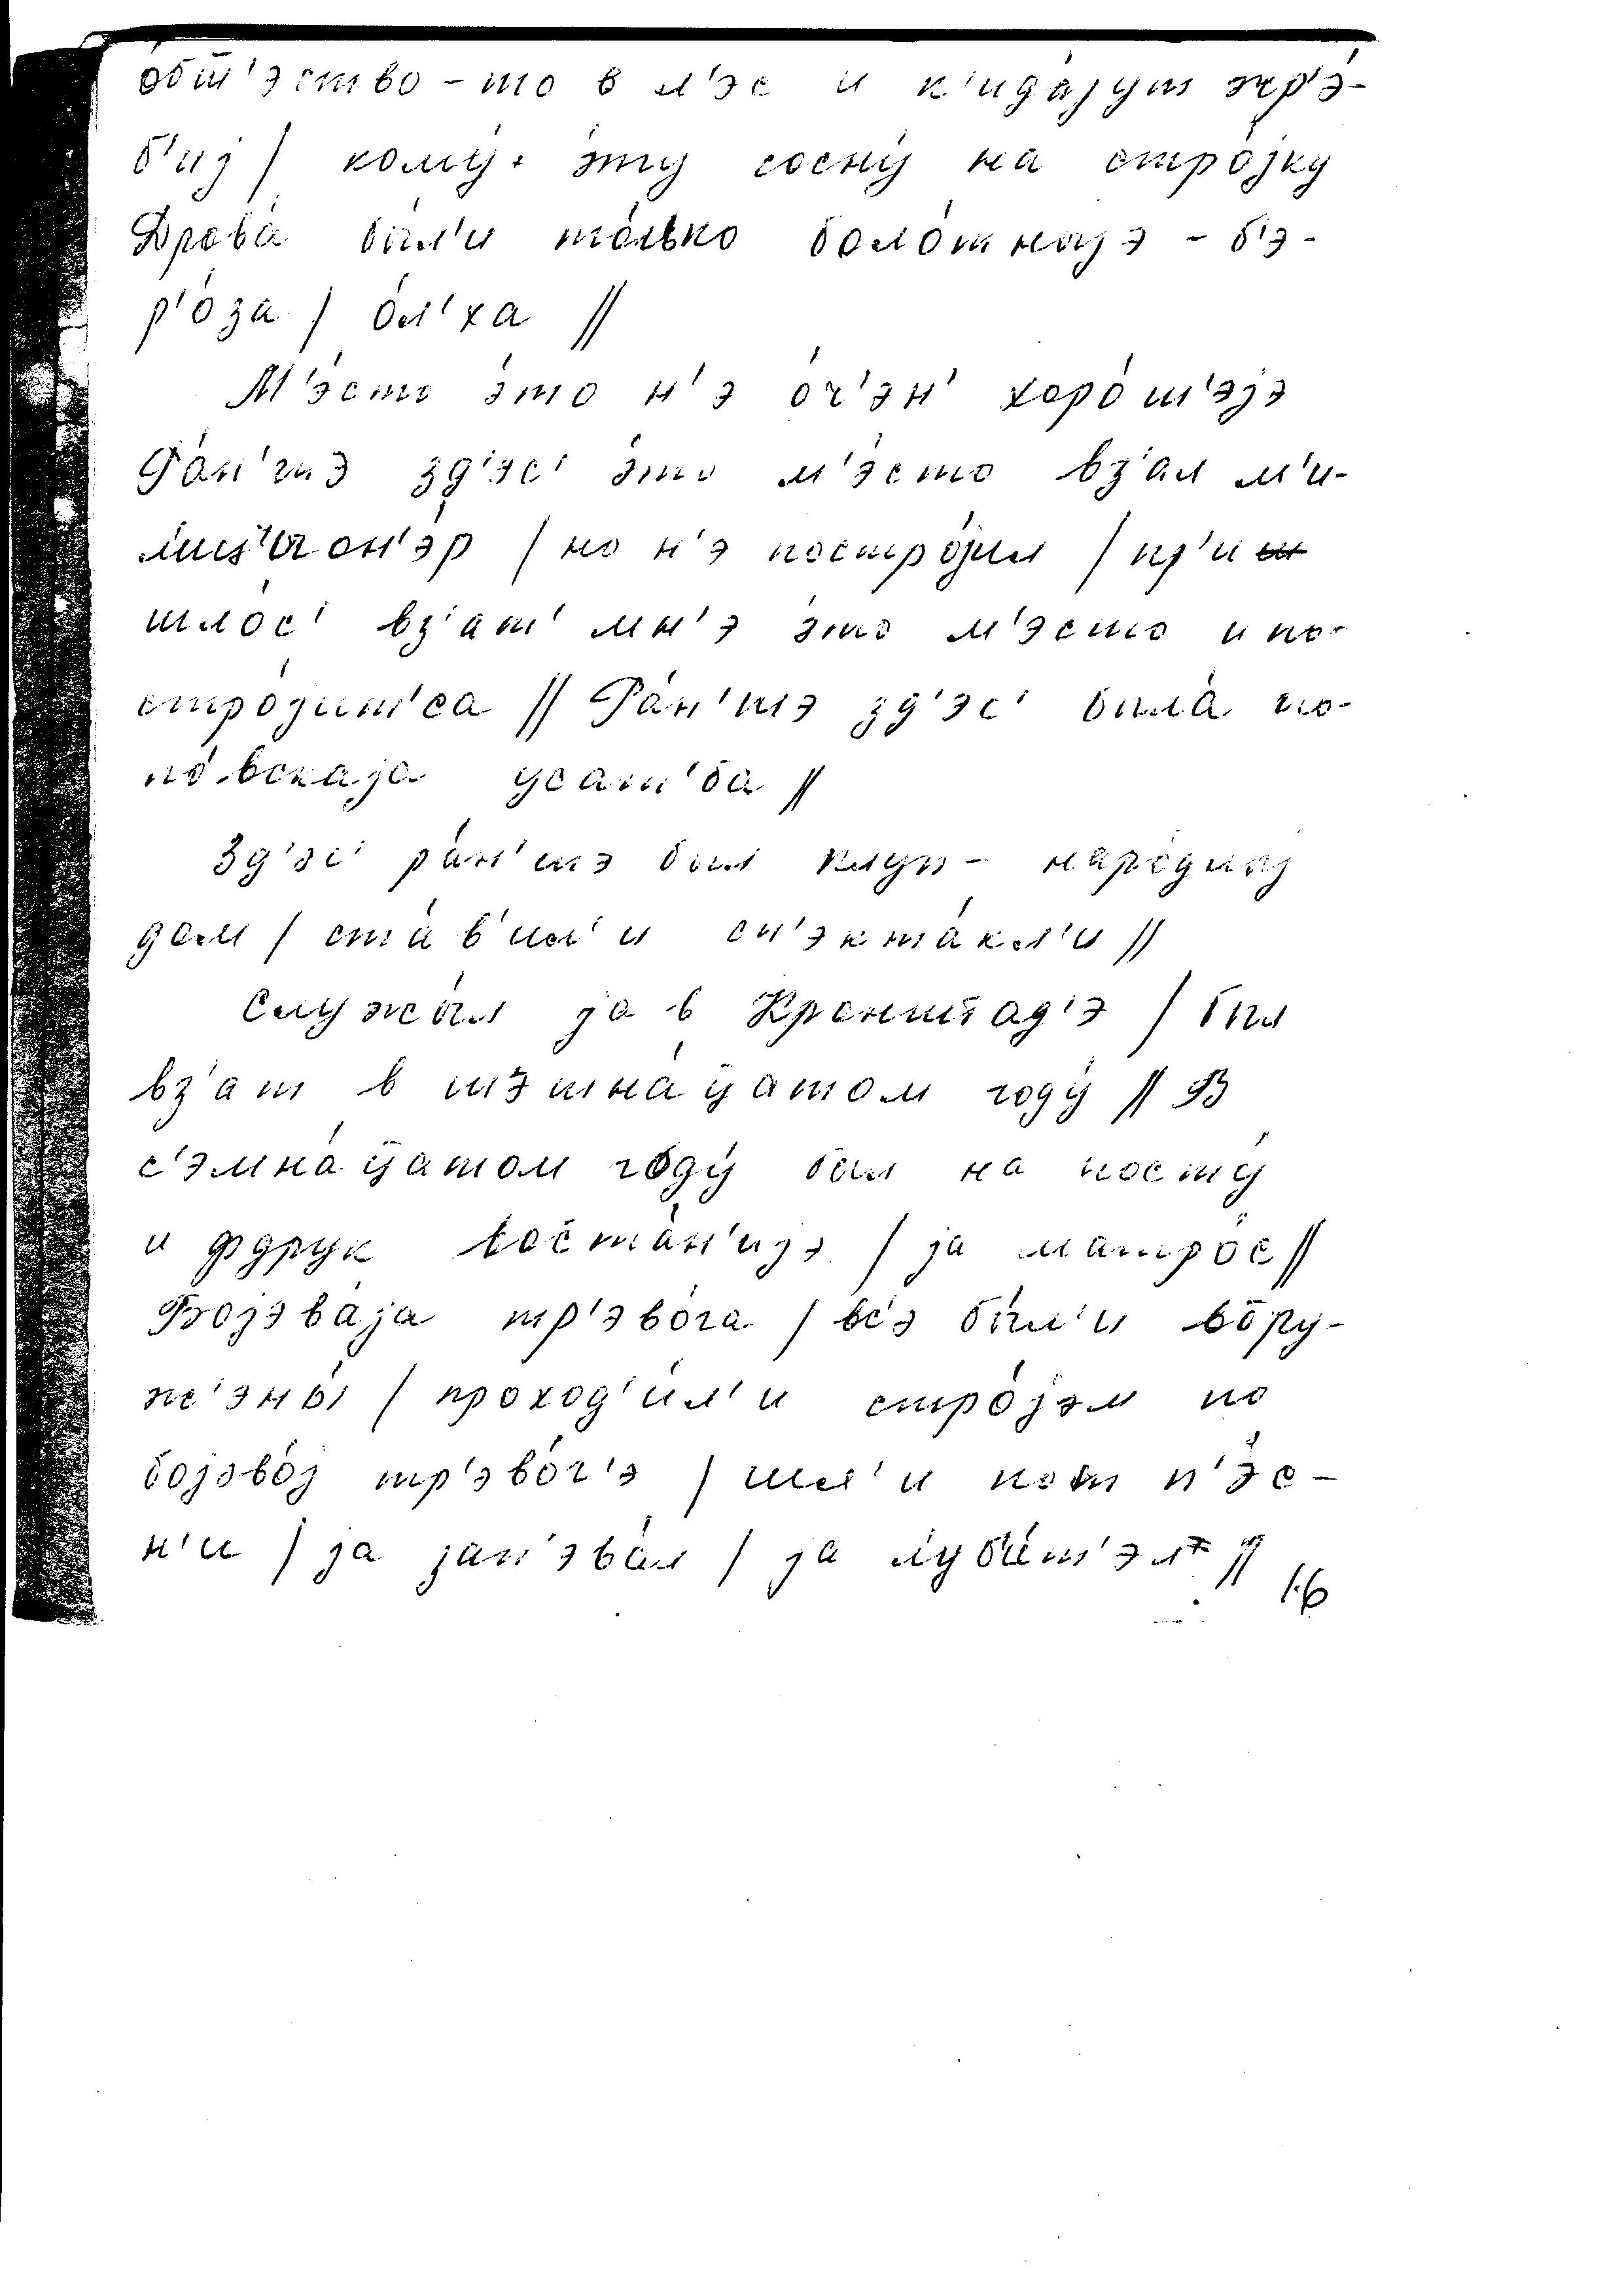 о́бш̅'эство-то в л'эс и к'ида́јут жр'э́-
б'иј / кому́ э́ту сосну́ на стро́јку
Дрова́ бы́л'и то́лько боло́тныјэ - б'э-
р'о́за / о́л'ха //
М'э́сто э́то н'э о́ч'эн' хоро́ш'эјэ
Ра́н'шэ зд'эс' э́то м'э́сто вз'ал м'и-
л'иц'ион'э́р / но н'э постро́јил / пр'и
шло́с' вз'ат' мн'э э́то м'э́сто и по-
стро́јит'са // Ра́н'шэ зд'эс' была́ по-
по́вскаја усат'ба //
Зд'эс' ра́н'шэ был клуп - наро́дныј
дом / ста́в'ил'и сп'экта́кл'и //
Служы́л ја в Кронштад'э / был
вз'ат в шэшна́ц̅атом году́ // В
с'эмна́ц̅атом году́ был на посту́
и вдрук воста́н'ијэ / ја матро́с //
Бојэва́ја тр'эво́га / вс'э бы́л'и во̅ру-
ж'эны́ / проход'и́л'и стро́јэм по
бојэво́ј тр'эво́г'э / шл'и пот п'э́с-
н'и / ја зап'эва́л / ја л'уб'и́т'эл' //
16